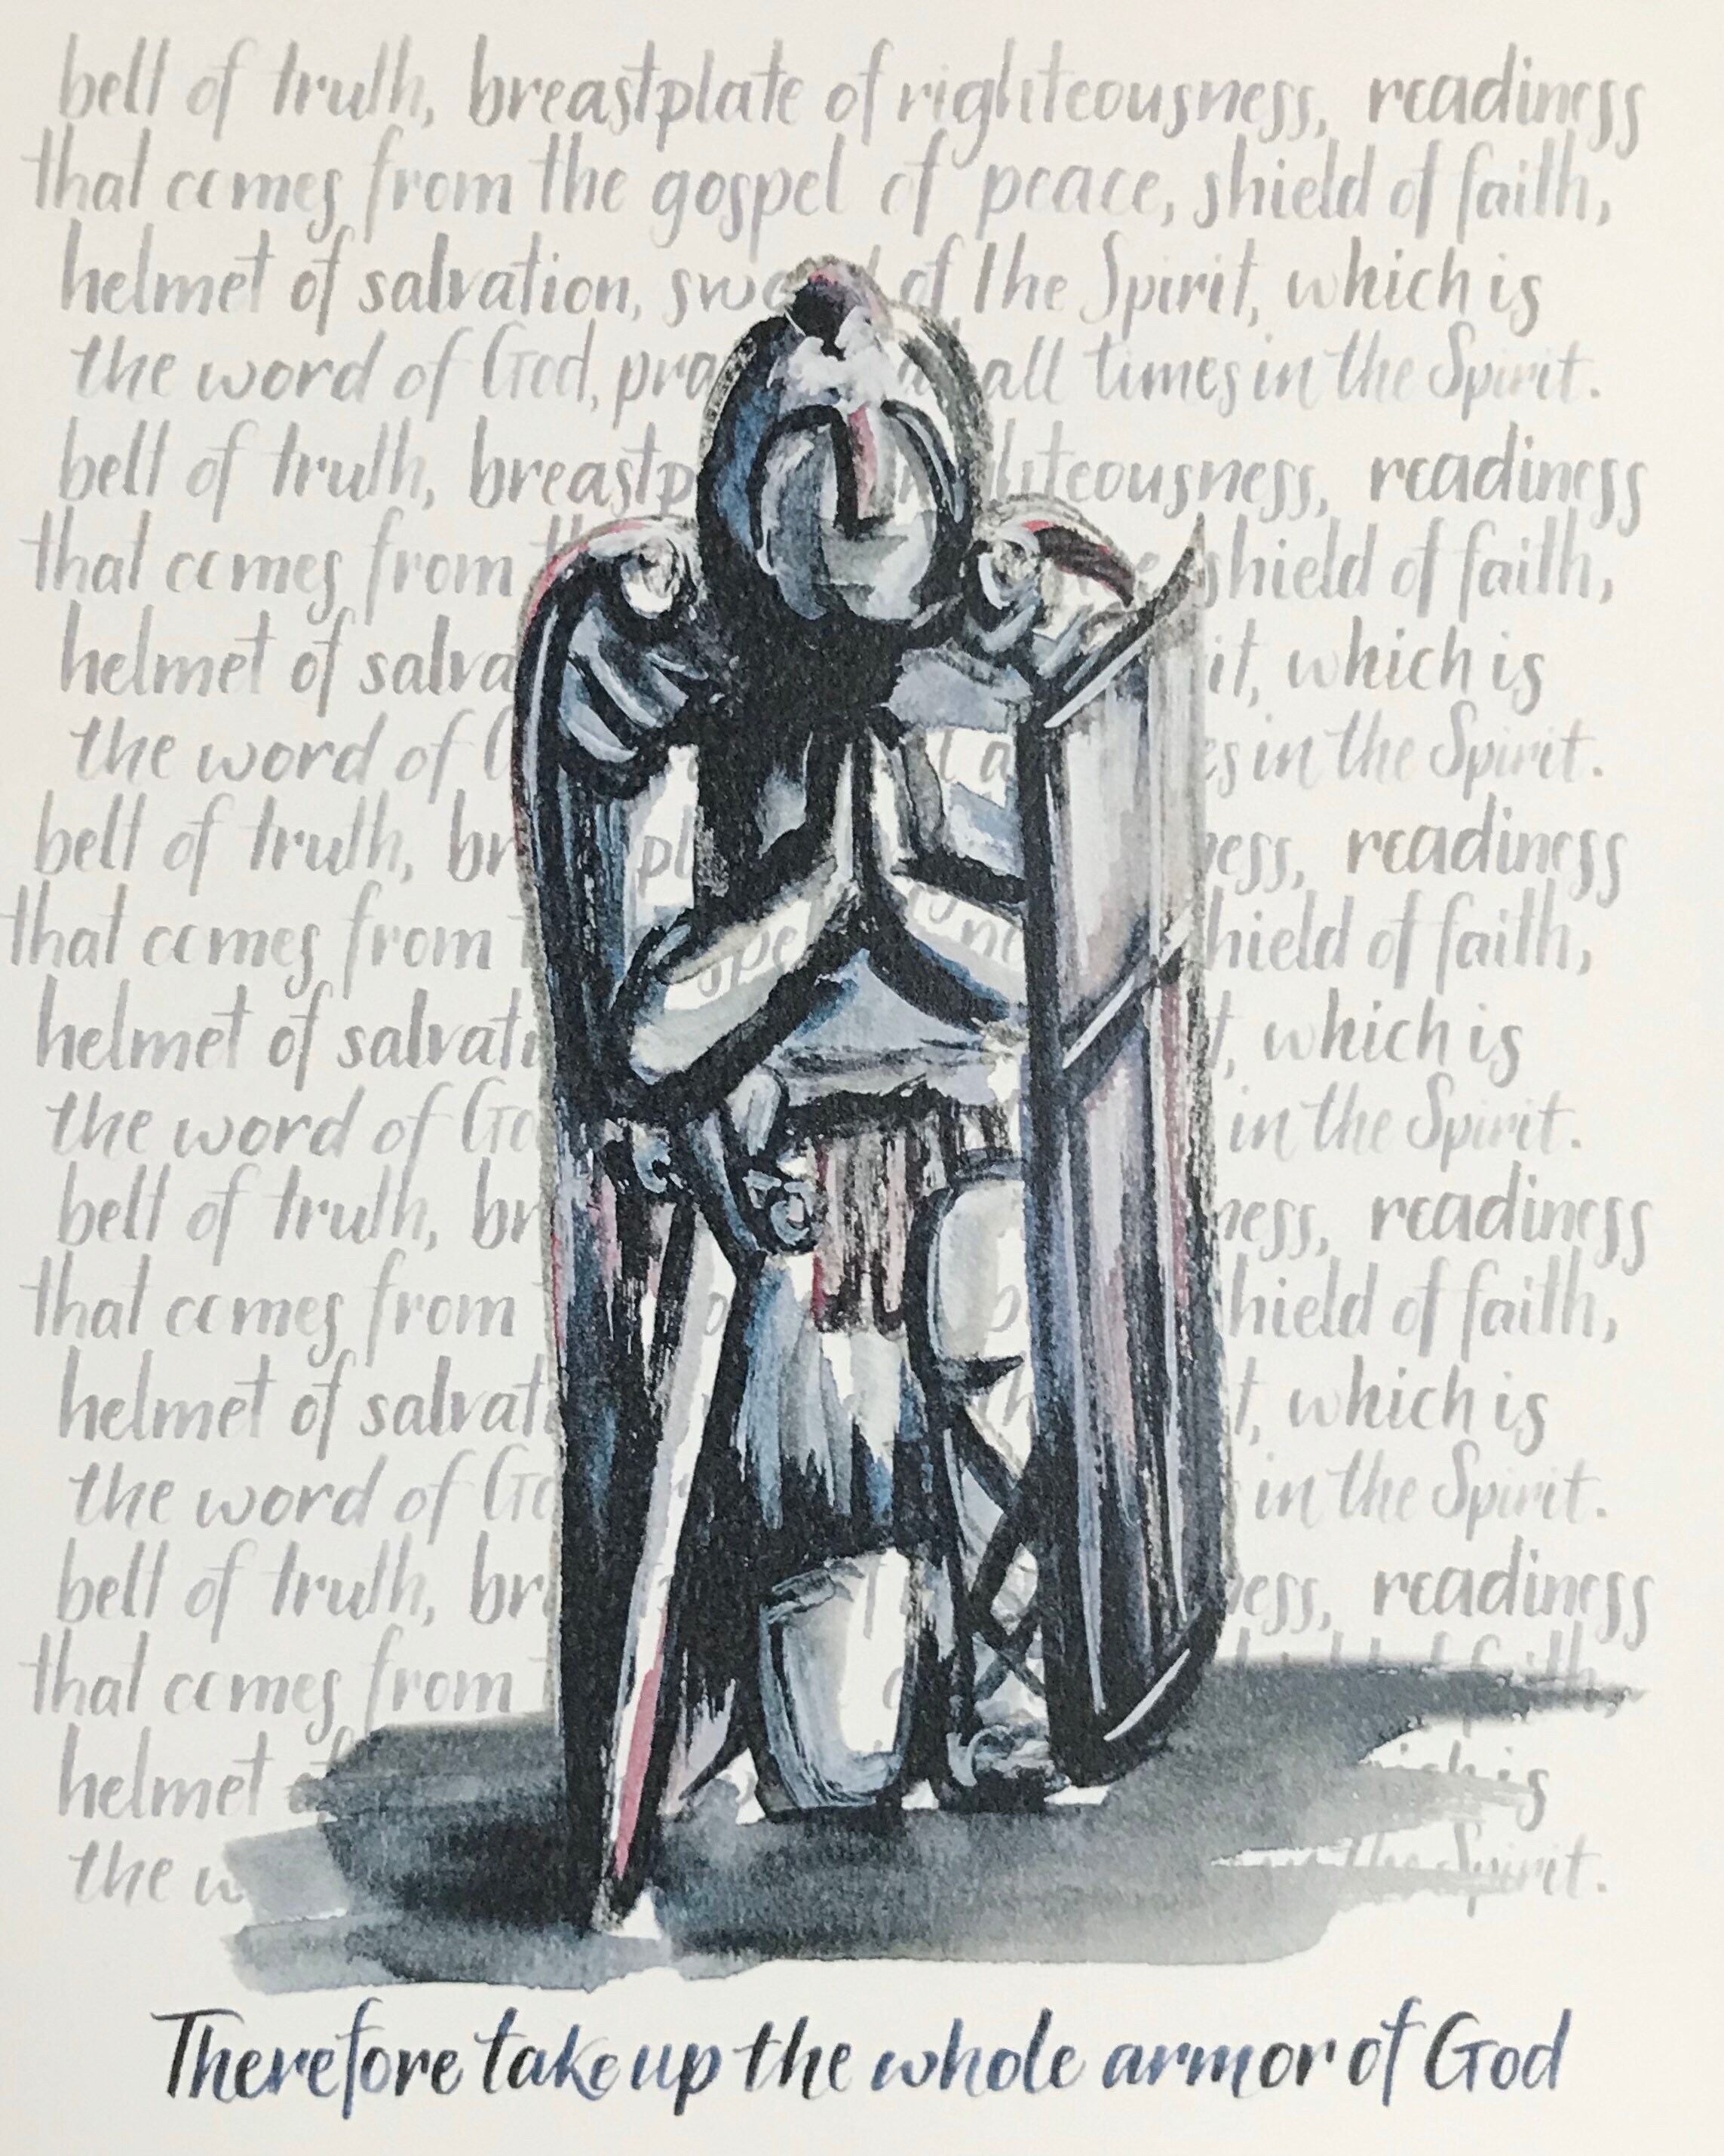 belt of truth, breastplate of righteousness, readiness
that comes from the gospel of peace, shield of faith,
helmet of salvation, sword of the Spirit, which is
the word of God, all times in the Spirit.
belt of truth, righteousness, readiness
that comes from shield of faith,
helmet of which is
the word of in the Spirit.
belt of truth, readiness
that comes from shield of faith,
helmet of which is
the word of in the Spirit.
belt of truth, readiness
that comes from shield of faith,
helmet of which is
the word of in the Spirit.
belt of truth, readiness
that comes from faith,
helmet is
the the Spirit.
Therefore take up the whole armor of God